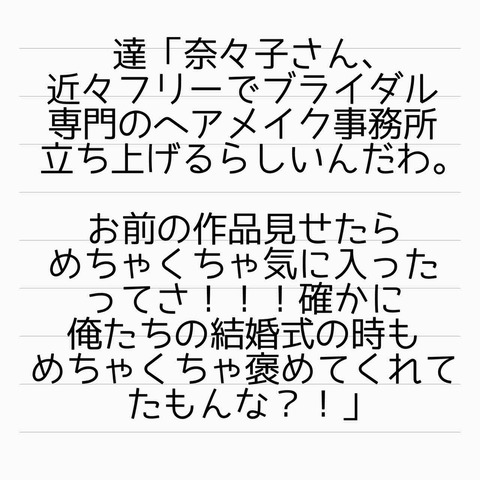 達「奈々子さん、
近々フリーでブライダル
専門のヘアメイク事務所
立ち上げるらしいんだわ。
お前の作品見せたら
めちゃくちゃ気に入った
ってさ！！！確かに
俺たちの結婚式の時も
めちゃくちゃ褒めてくれて
たもんな？！」